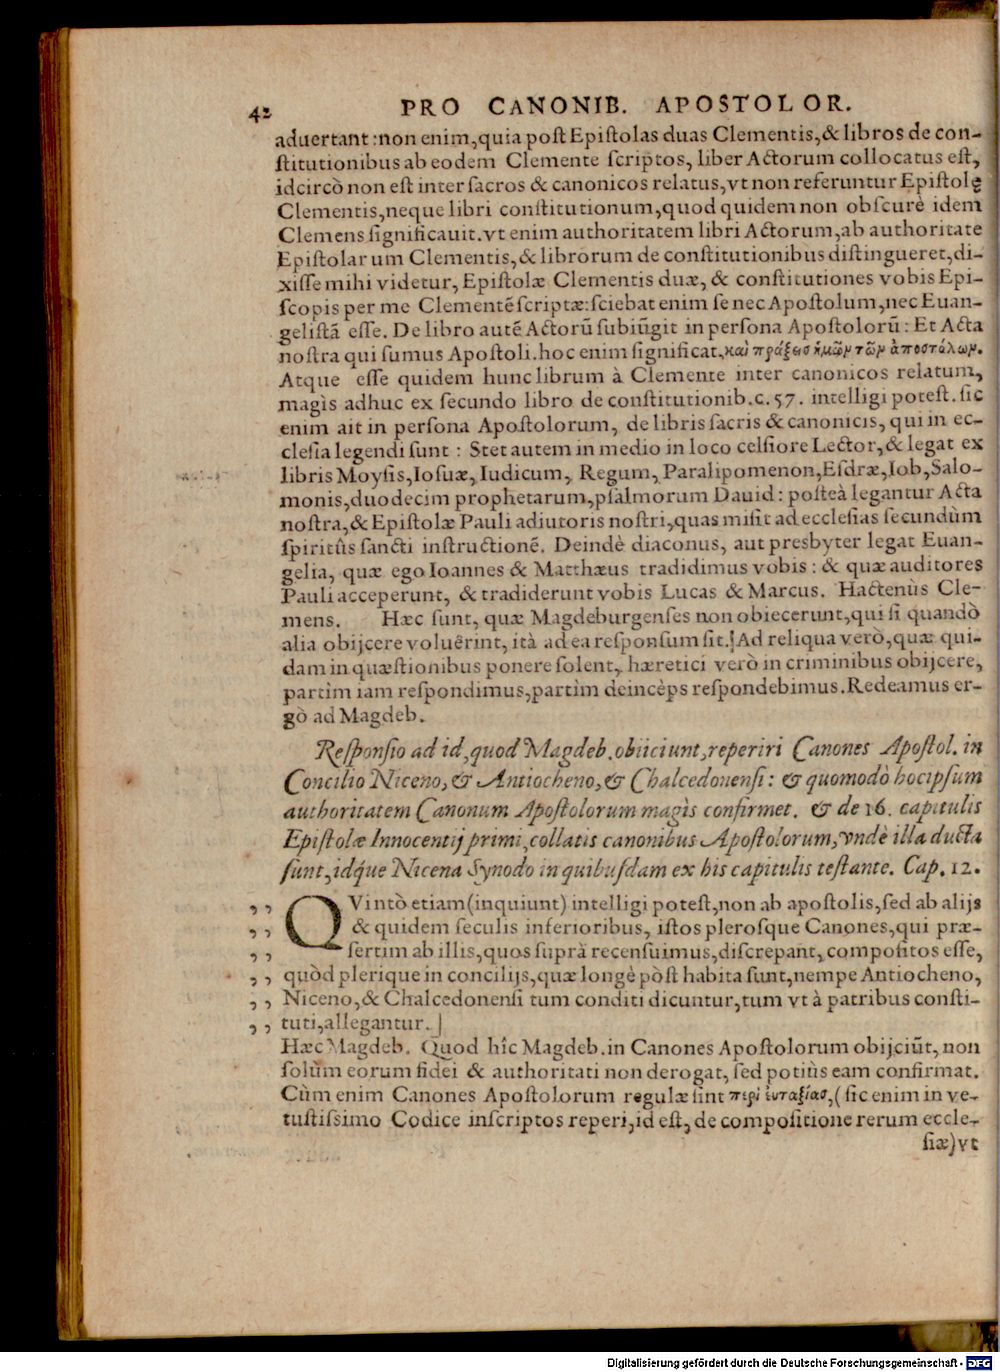 42 PRO CANONIB. APOSTOLOR.
aduertant:non enim,quia poſt Epiſtolas duas Clementis,& libros de con-
ſtitutionibus ab eodem Clemente ſcriptos, liber Actorum collocatus eſt,
idcircò non eſt inter ſacros & canonicos relatus,vt non referuntur Epiſtolę
Clementis,neque libri conſtitutionum,quod quidem non obſcurè idem
Clemens ſignificauit.vt enim authoritatem libri Actorum,ab authoritate
Epiſtolarum Clementis,& librorum de conſtitutionibus diſtingueret,di-
xiſſe mihi videtur, Epiſtolæ Clementis duæ, & conſtitutiones vobis Epi-
ſcopis per me Clementẽ ſcriptæ:ſciebat enim ſe nec Apoſtolum,nec Euan-
geliſtã eſſe. De libro autẽ Actorũ ſubiũgit in perſona Apoſtolorũ: Et Acta
noſtra qui ſumus Apoſtoli.hoc enim ſignificat,καὶ πράξεισ ἡμῶν τῶν ἀποστόλων.
Atque eſſe quidem hunc librum à Clemente inter canonicos relatum,
magìs adhuc ex ſecundo libro de conſtitutionib.c.57. intelligi poteſt.ſic
enim ait in perſona Apoſtolorum, de libris ſacris & canonicis, qui in ec-
cleſia legendi ſunt: Stet autem in medio in loco celſiore Lector,& legat ex
libris Moyſis,Ioſuæ, Iudicum, Regum, Paralipomenon,Eſdræ,Iob,Salo-
monis,duodecim prophetarum,pſalmorum Dauid: poſteà legantur Acta
noſtra,& Epiſtolæ Pauli adiutoris noſtri,quas miſit ad eccleſias ſecundùm
ſpiritûs ſancti inſtructionẽ. Deindè diaconus, aut presbyter legat Euan-
gelia, quæ ego Ioannes & Matthæus tradidimus vobis: & quæ auditores
Pauli acceperunt, & tradiderunt vobis Lucas & Marcus. Hactenùs Cle-
mens. Hæc ſunt, quæ Magdeburgenſes non obiecerunt,qui ſi quandò
alia obijcere voluêrint, ità ad ea reſponſum ſit.] Ad reliqua verò,quæ qui-
dam in quæſtionibus ponere ſolent, hæretici verò in criminibus obijcere,
partìm iam reſpondimus,partìm deincèps reſpondebimus.Redeamus er-
gò ad Magdeb.
Reſponſio ad id,quod Magdeb.obiiciunt,reperiri Canones Apoſtol. in
Concilio Niceno,& Antiocheno,& Chalcedonenſi: & quomodò hocipſum
authoritatem Canonum Apoſtolorum magìs confirmet. & de 16. capitulis
Epiſtolæ Innocentij primi,collatis canonibus Apoſtolorum,vndè illa ducta
ſunt,idq́ue Nicena Synodo in quibuſdam ex his capitulis teſtante. Cap. 12.
,, QVintò etiam(inquiunt) intelligi poteſt,non ab apoſtolis,ſed ab alijs
,, & quidem ſeculis inferioribus, iſtos pleroſque Canones,qui præ-
,, ſertim ab illis,quos ſuprà recenſuimus,diſcrepant, compoſitos eſſe,
,, quòd plerique in concilijs,quæ longè pòſt habita ſunt,nempe Antiocheno,
,, Niceno,& Chalcedonenſi tum conditi dicuntur,tum vt à patribus conſti-
,, tuti,allegantur.]
Hæc Magdeb. Quod hîc Magdeb.in Canones Apoſtolorum obijciũt, non
ſolùm eorum fidei & authoritati non derogat, ſed potiùs eam confirmat.
Cùm enim Canones Apoſtolorum regulæ ſint περὶ ἐυταξίασ,(ſic enim in ve-
tuſtiſsimo Codice inſcriptos reperi,id eſt, de compoſitione rerum eccle-
ſiæ)vt
Digitalisierung gefördert durch die Deutsche Forschungsgemeinschaft - DFG